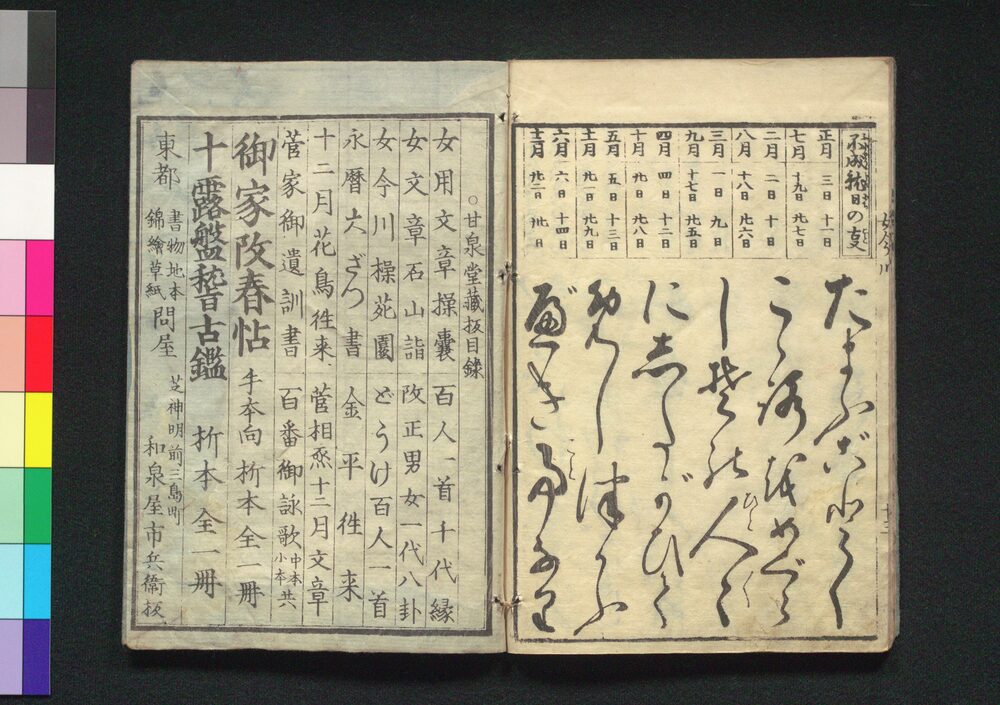 不成就日の事
正月 三日 十一日
七月 十九日 廿七日
二月 二日 十日
八月 十八日 廿六日
三月 一日 九日
九月 十七日 廿五日
四月 四日 十二日
十月 廿日 廿八日
五月 五日 十三日
十一月 廿一日 廿九日
六月 六日 十四日
十二月 廿二日 卅日
こゝろをめぐら
し其の人々
にしたがひて
めしつかふ
べき事なり
女今川
十三
○甘泉堂藏板目録
女用文章操嚢 百人一首千代縁
女文章石山詣 改正男女一代八卦
女今川操苑園 どうけ百人一首
永暦大ざつ書 金平徃来
十二月花鳥徃来 菅相烝十二月文章
菅家御遺訓書 百番御詠歌 中本小本共
御家改春帖 手本向 折本全一冊
十露盤稽古鑑 折本 全一冊
東都 書物地本 錦繪草紙 問屋 芝神明前三島町 和泉屋市兵衞板